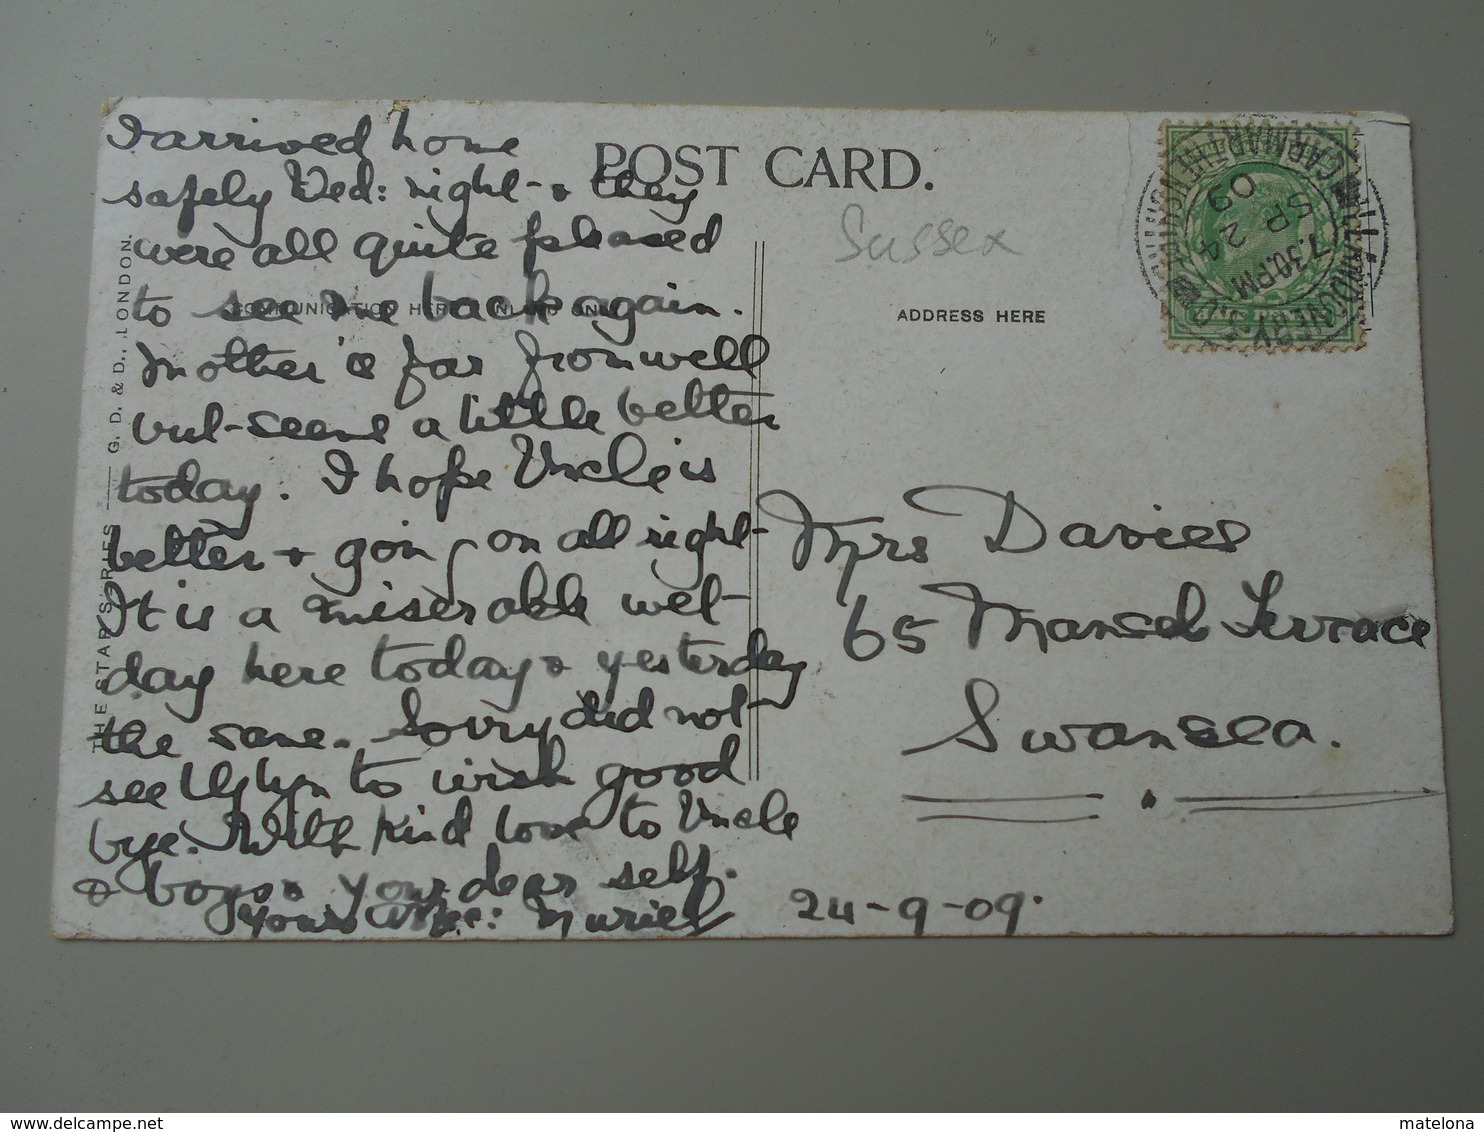 I arrived home
safely Wed: night & they
were all quite pleased
to see me back again.
Mother is far from well
but seems a little better
today. I hope Uncle is
better & going on all right
It is a miserable wet
day here today & yesterday
the same. Sorry did not
see to wish good
bye. With kind love to Uncle
& boys & your dear self.
Yours Muriel
24-9-09.
POST CARD.
COMMUNICATION HERE INLAND ONLY
ADDRESS HERE
Sussex
Mrs Davies
65 Mansel Terrace
Swansea.
THE STAR SERIES — G. D. & D., LONDON.
LLANDOVERY S.O
CARMARTHENSHIRE
7.30PM
24
SP
09
matelona